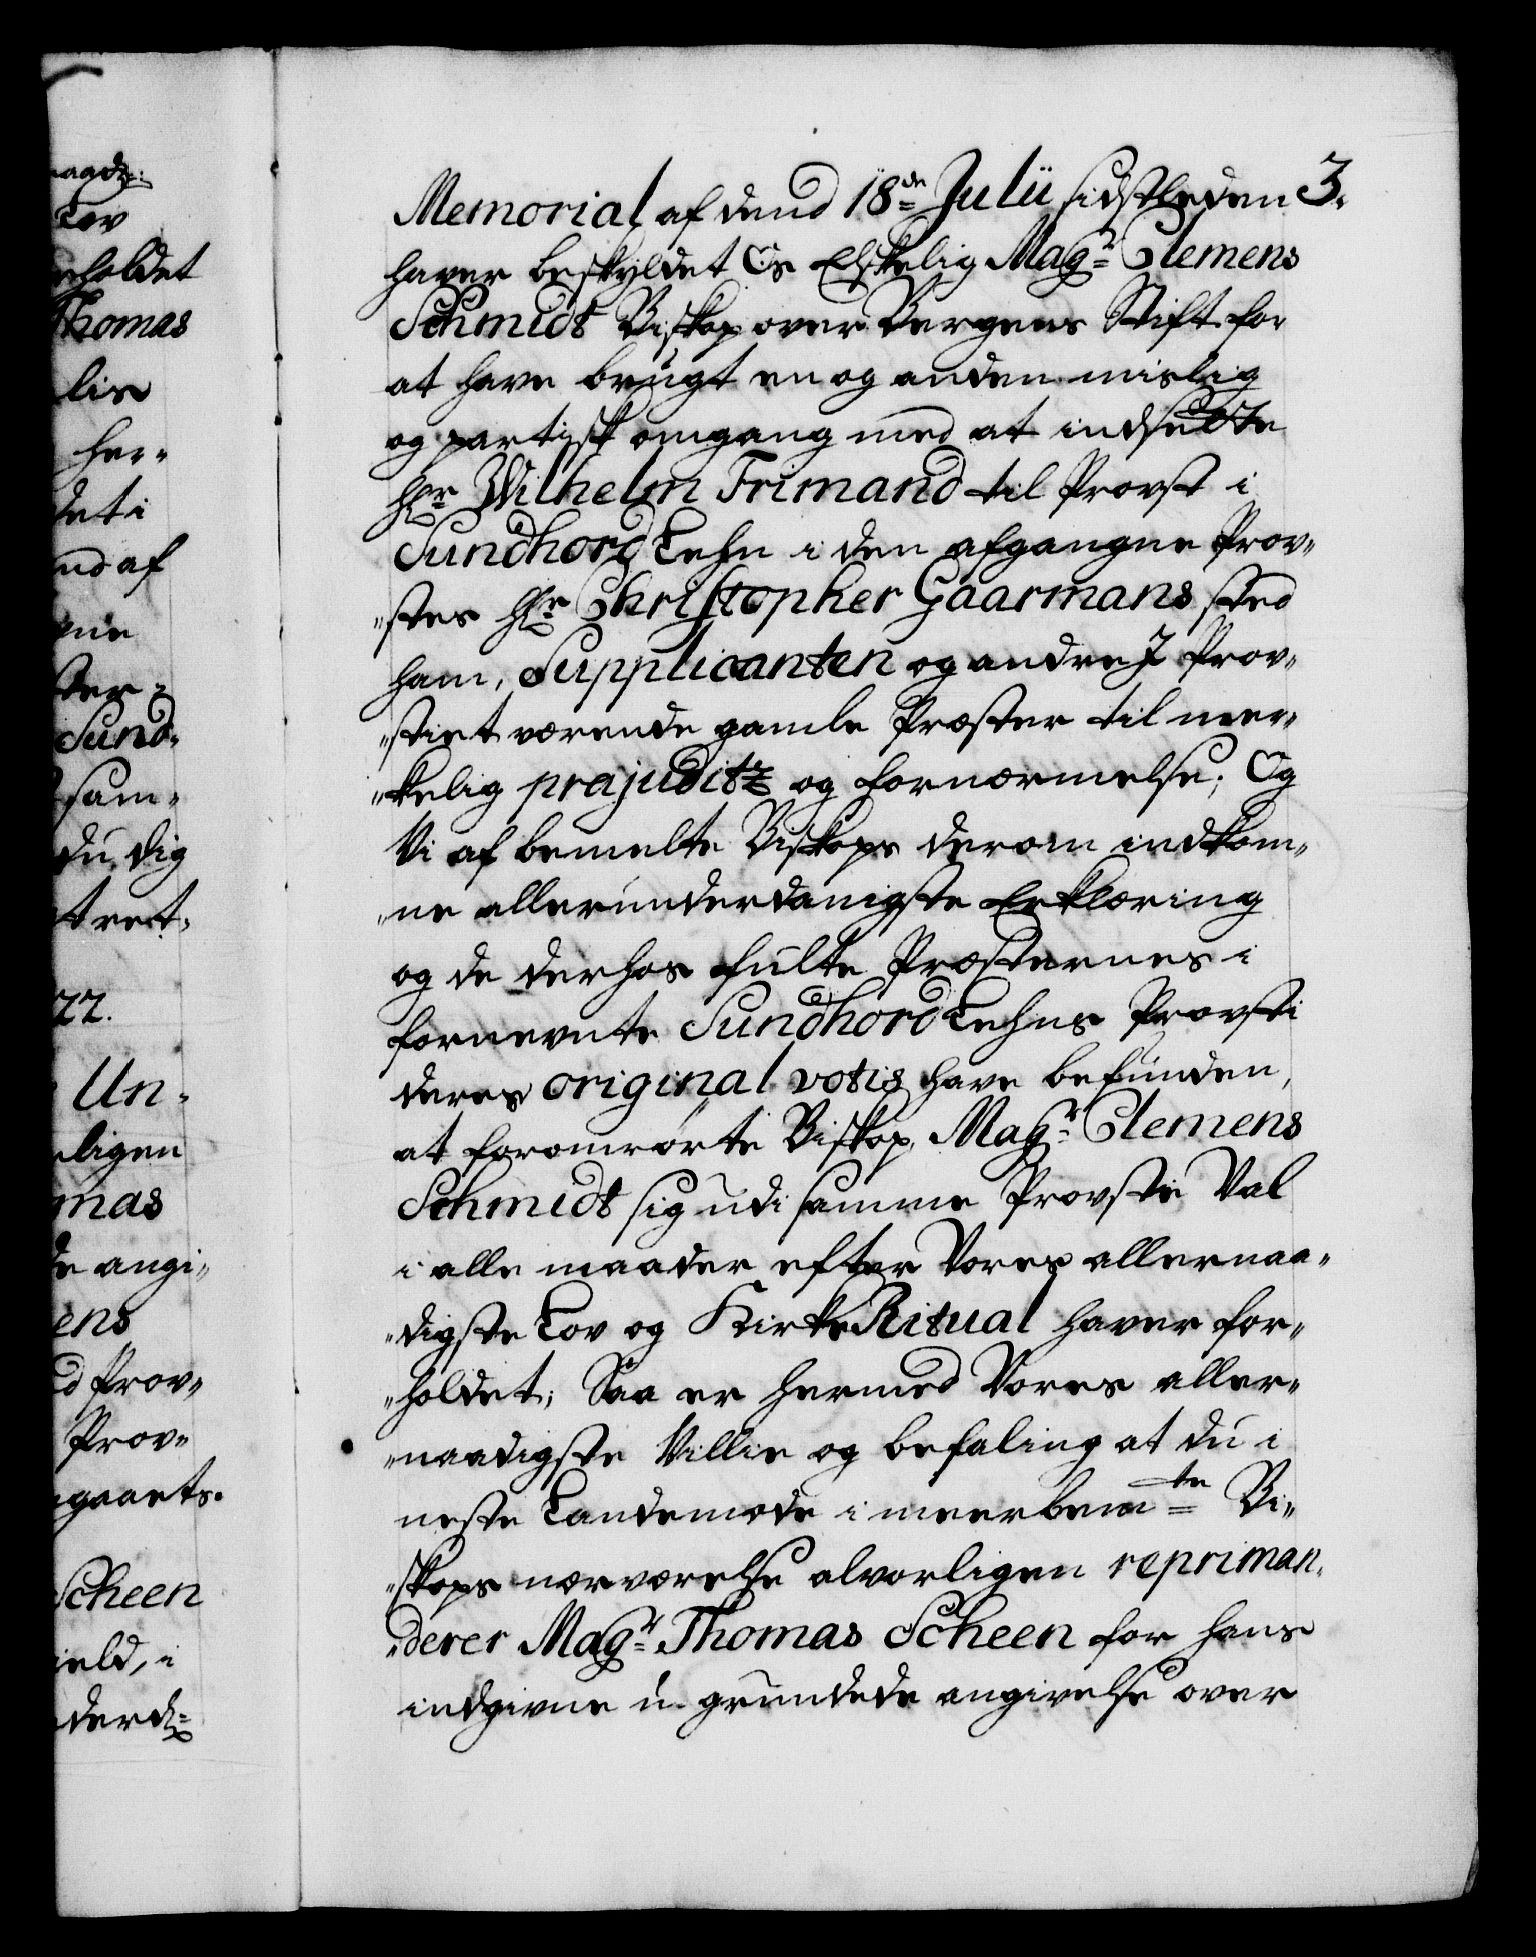 aadg:
Lov
rholdet
Thomas
lis
her-
det i
nd af
ne
ster-
Sund-
sam-
du dig
t ret-
22.
Un-
ligen
mas
de angi-
ens
d Prov-
Prov-
gaarts-
Scheen
ield, i
derd:
3.
Memorial af dend 18de Julii sidstleden
haver beskyldet Os Elskelig Magr. Clemens
Schmidt Biskop over Bergens Stift for
at have brugt en og anden mislig
og partisk omgang med at indsætte
Hr. Wilhelm Frimand til Provst i
Sundhord Lehn i den afgangne Prov-
-stes Hr. Christopher Gaarmans sted
ham, Supplicanten og andre I Prov-
-stiet værende gamle Præster til mer-
-kelig præjuditz og fornærmelse; Og
Vi af bemelte Biskops derom indkom-
-ne allerunderdanigste Erklæring
og de derhos fulte Præsternes i
fornevnte Sundhord Lehns Provsti
deres original votis have befunden,
at foromrørte Biskop Magr. Clemens
Schmidt sig udi samme Provste Val
i alle maader efter Vores allernaa-
-digste Lov og Kirke Ritual haver for-
-holdet; Saa er hermed Vores aller-
-naadigste Villie og befaling at du i
neste Landemode i meerbemte Bi-
-skops nærværelse alvorligen repriman-
-derer Magr. Thomas Scheen for hans
indgivne u-grundede angivelse over